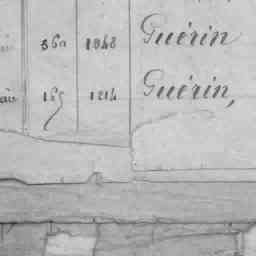 360 1848 Guérin
165 1214 Guérin,